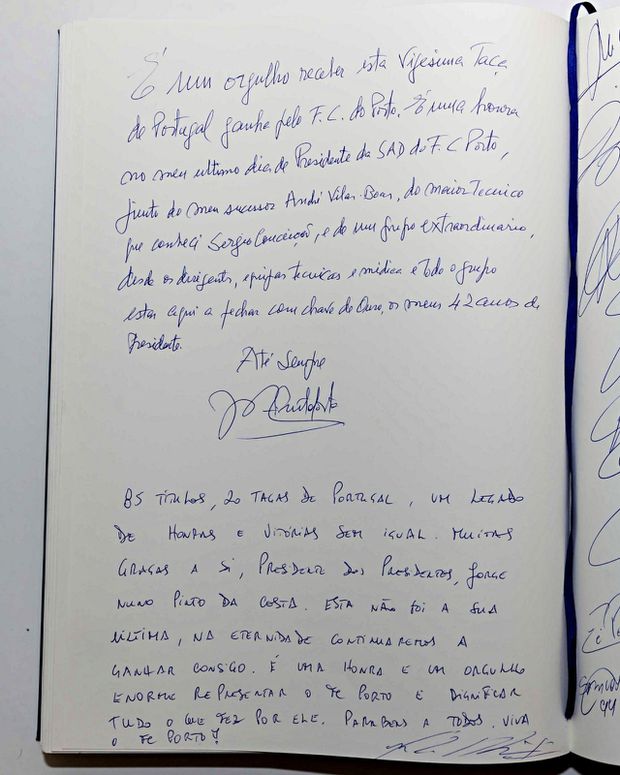 É um orgulho receber esta Vigésima Taça
de Portugal ganha pelo F.C. do Porto. É uma honra
no meu ultimo dia, de Presidente da SAD do F.C Porto,
junto do meu sucessor André Vilas-Boas, do maior Tecnico
que conheci Sergio Conceição, e de um grupo extraordinario,
desde os dirigentes, equipas tecnicas e médica e todo o grupo
estar aqui a fechar com chave de Ouro, os meus 42 anos de
Presidente.
Até Sempre
85 TÍTULOS, 20 TAÇAS DE PORTUGAL, UM LEGADO
DE HONRAS E VITÓRIAS SEM IGUAL. MUITAS
GRAÇAS A SI, PRESIDENTE DOS PRESIDENTES, JORGE
NUNO PINTO DA COSTA. ESTA NÃO FOI A SUA
ÚLTIMA, NA ETERNIDADE CONTINUAREMOS A
GANHAR CONSIGO. É UMA HONRA E UM ORGULHO
ENORME REPRESENTAR O FC PORTO E DIGNIFICAR
TUDO O QUE FEZ POR ELE. PARABENS A TODOS. VIVA
O FC PORTO!